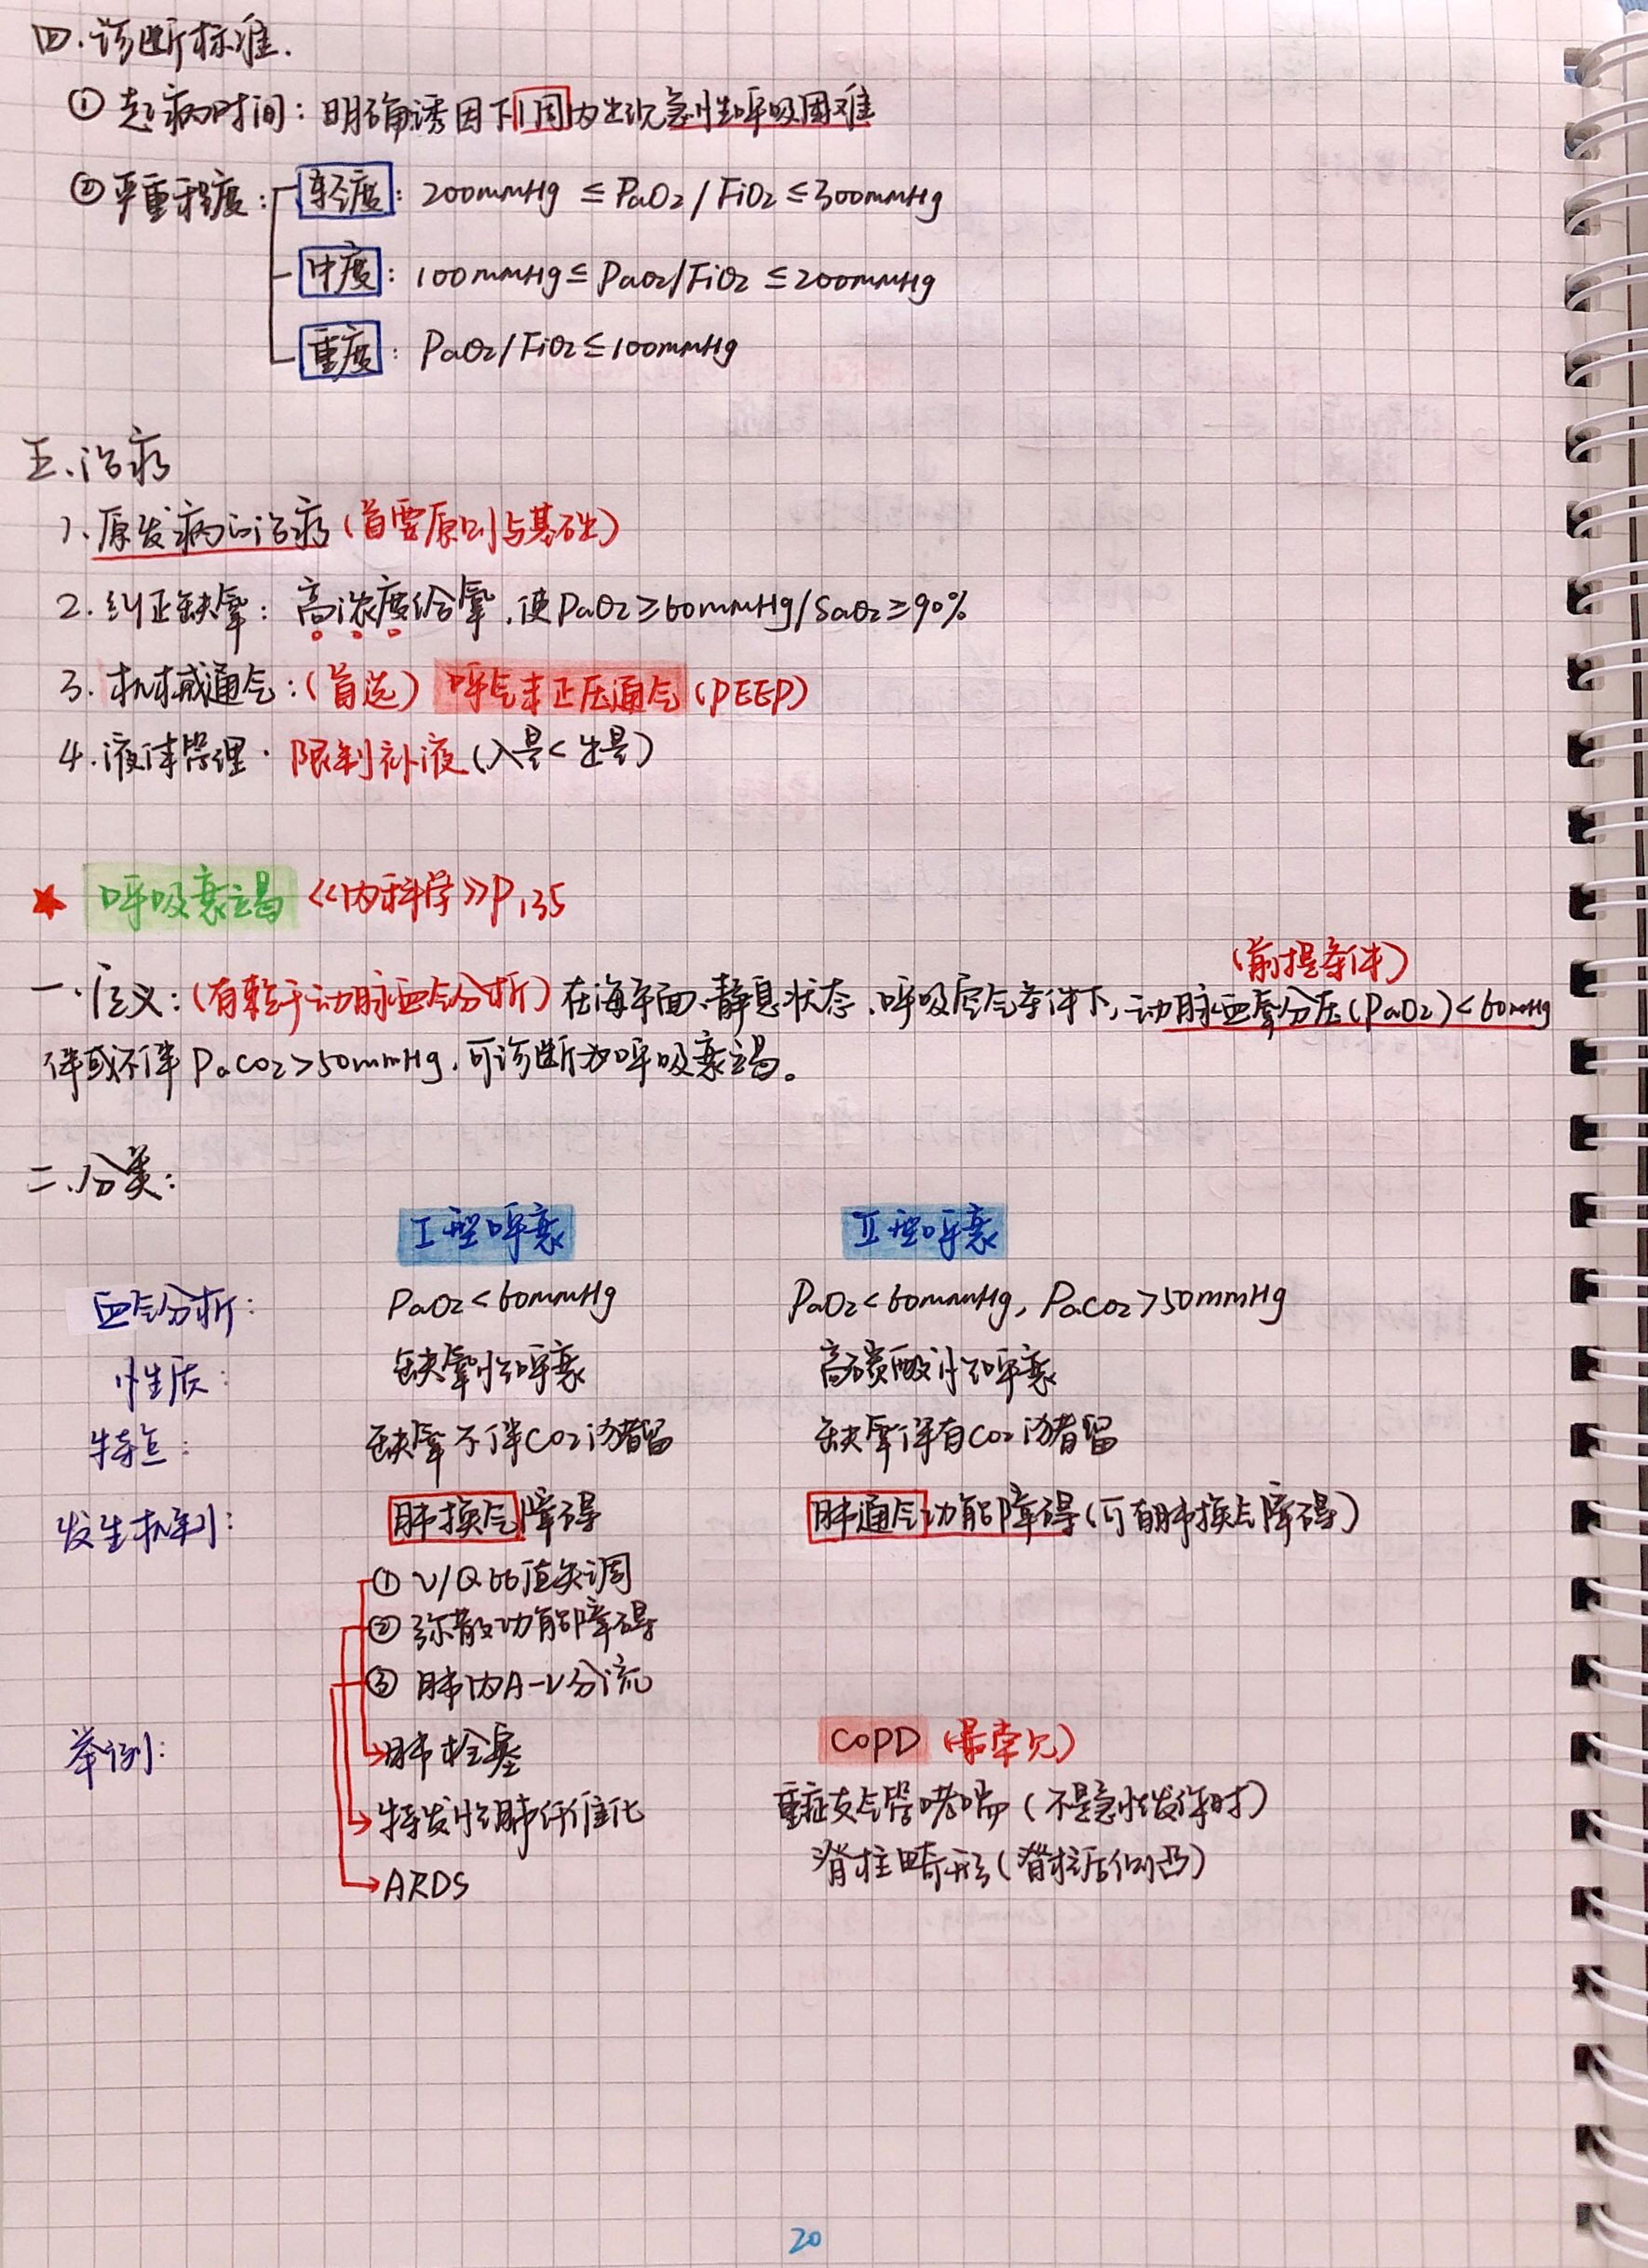 四.诊断标准.
① 起病时间：明确诱因下1周内出现急性呼吸困难
② 严重程度：轻度：200mmHg ≤ PaO₂/FiO₂ ≤300mmHg
中度：100mmHg ≤ PaO₂/FiO₂ ≤200mmHg
重度：PaO₂/FiO₂ ≤100mmHg
五.治疗
1.原发病的治疗(首要原则与基础)
2.纠正缺氧：高浓度给氧.使PaO₂≥60mmHg/SaO₂≥90%
3.机械通气：(首选)呼气末正压通气(PEEP)
4.液体管理.限制补液(入量<出量)
★ 呼吸衰竭《内科学》P135
(前提条件)
一.定义：(有赖于动脉血气分析)在海平面、静息状态、呼吸空气条件下,动脉血氧分压(PaO₂)<60mmHg
伴或不伴PaCO₂>50mmHg,可诊断为呼吸衰竭。
二.分类：
I型呼衰 II型呼衰
血气分析：PaO₂<60mmHg PaO₂<60mmHg, PaCO₂>50mmHg
性质：缺氧性呼衰 高碳酸性呼衰
特点：缺氧不伴CO₂潴留 缺氧伴有CO₂潴留
发生机制：肺换气障碍 肺通气功能障碍(可有肺换气障碍)
① V/Q比值失调
② 弥散功能障碍
③ 肺内A-V分流
举例：肺栓塞 COPD (最常见)
特发性肺纤维化 重症支气管哮喘(不是急性发作时)
ARDS 脊柱畸形(脊柱后侧凸)
20